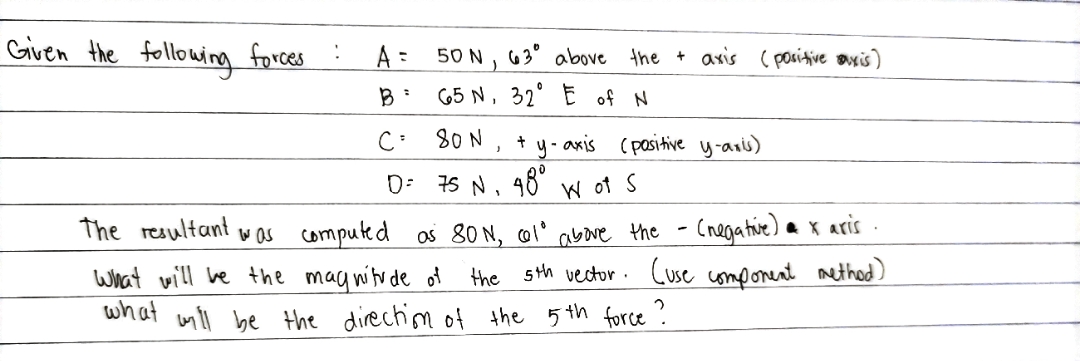 Given the following forces : A = 50 N, 63° above the + axis (positive axis)
B = 65 N, 32° E of N
C = 80 N, + y-axis (positive y-axis)
D = 75 N, 48° W of S
The resultant was computed as 80 N, 61° above the - (negative) x axis.
What will be the magnitude of the 5th vector. (use component method)
what will be the direction of the 5th force?